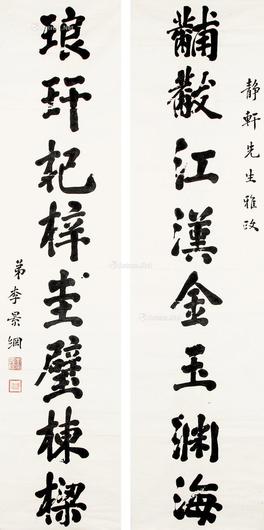 静軒先生雅政
黼黻江漢金玉渊海
琅玕杞梓圭璧棟樑
弟李景綱